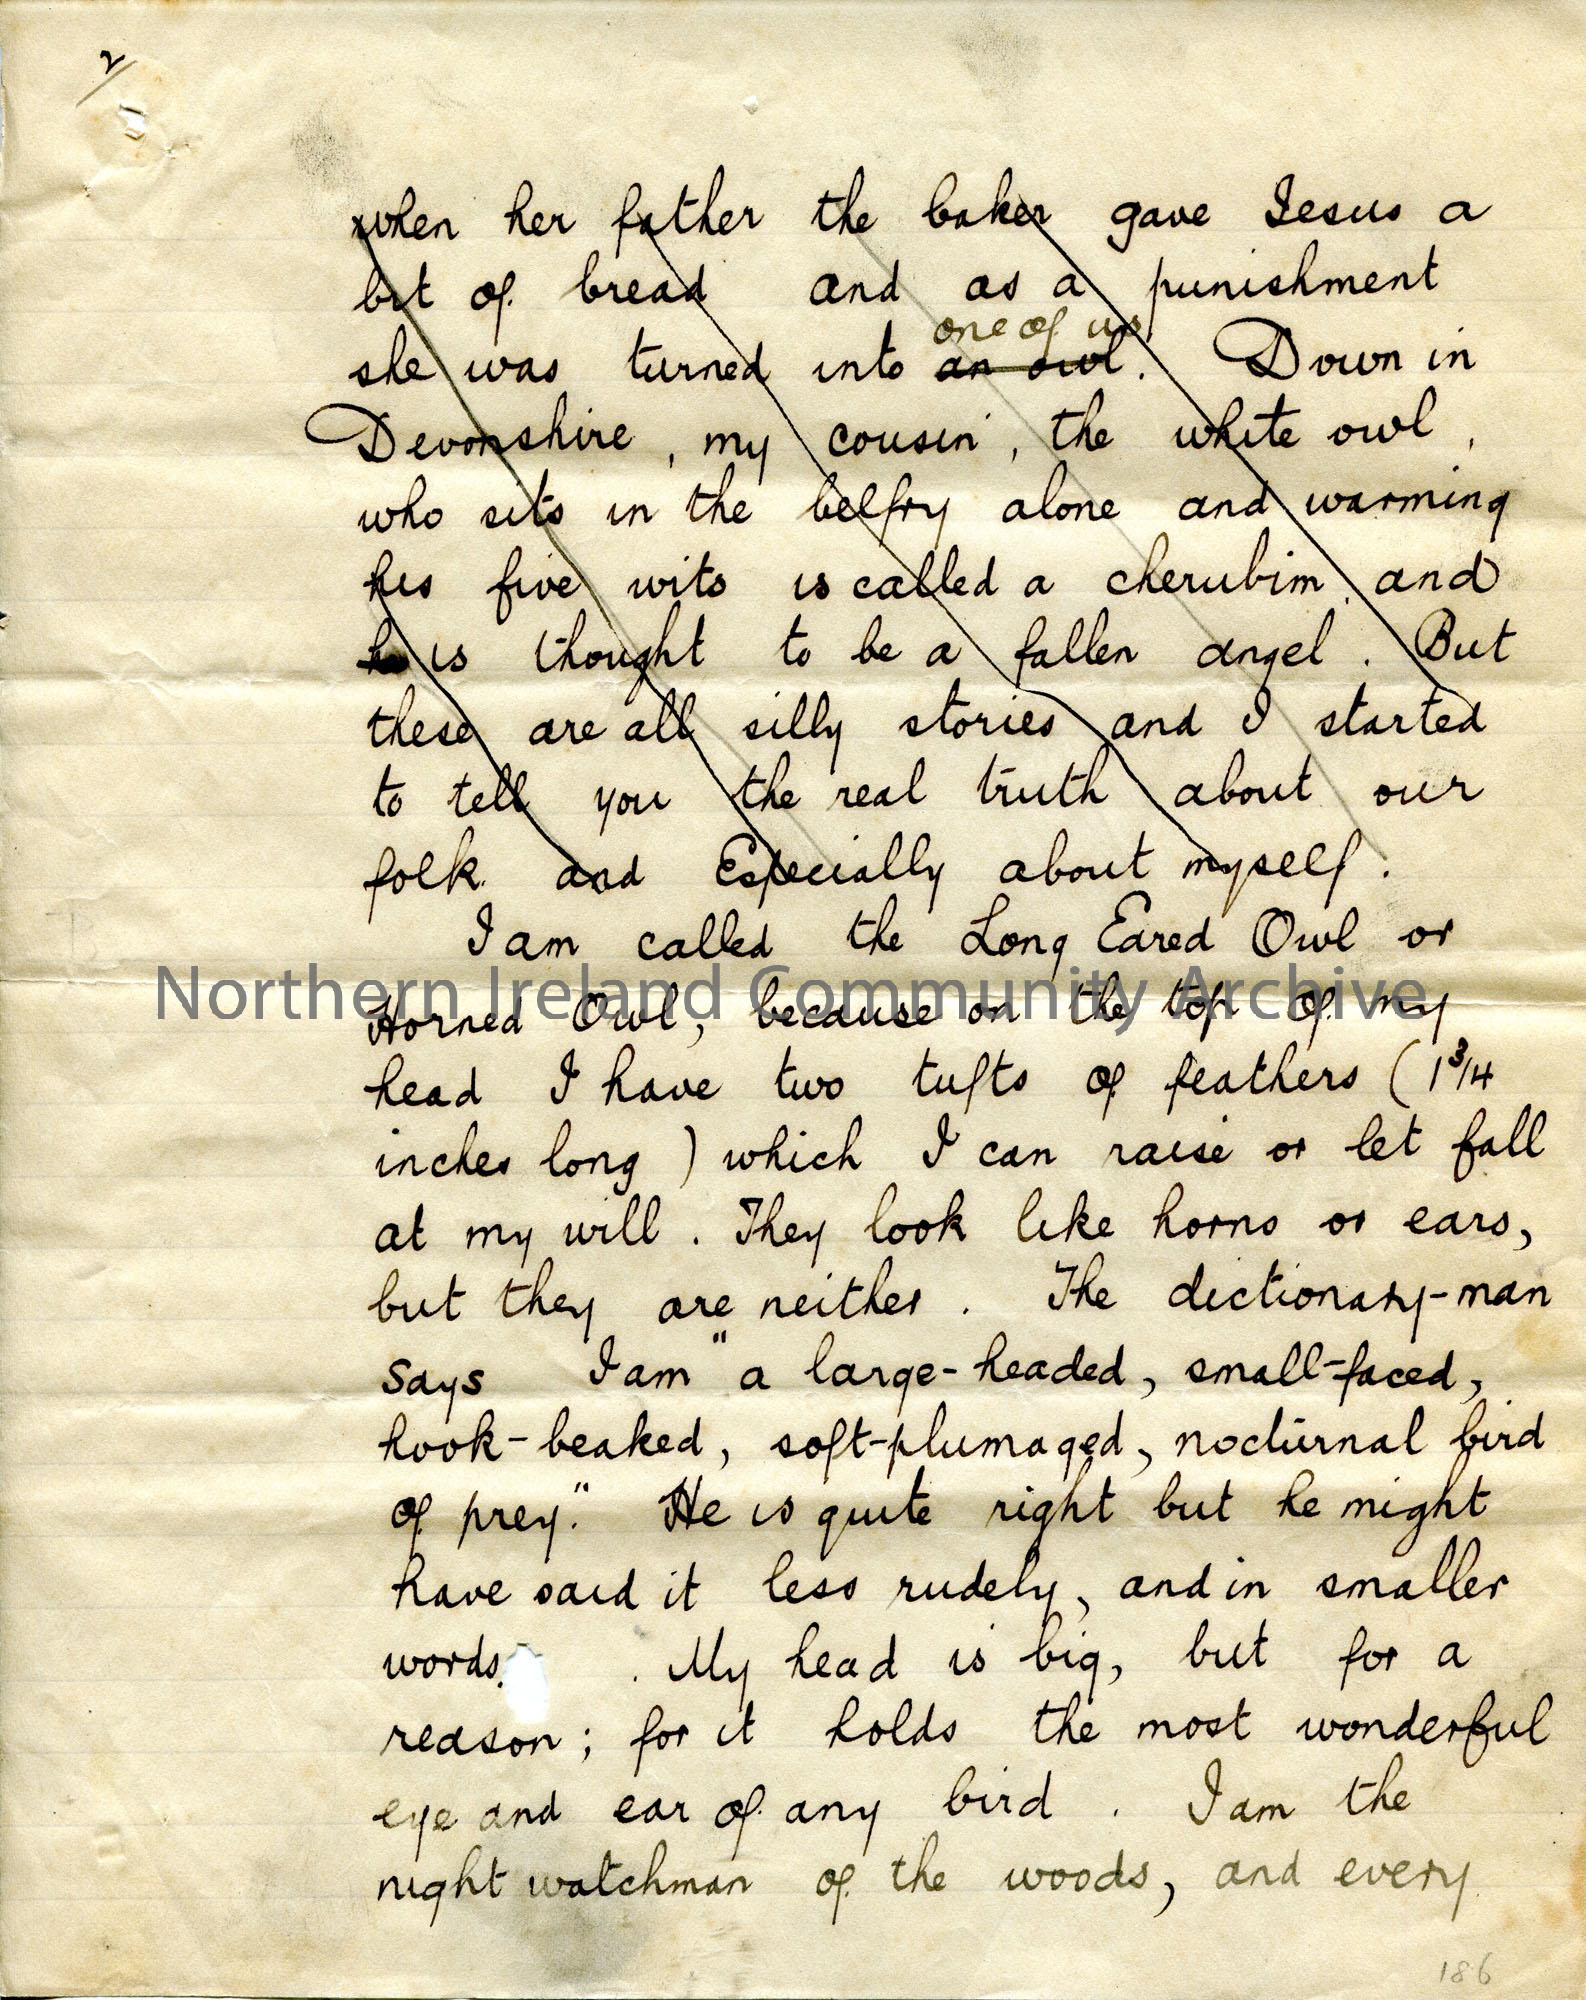 2/
when her father the baker gave Jesus a
bit of bread and as a punishment
one of us
she was turned into an owl. Down in
Devonshire, my cousin, the white owl,
who sits in the belfry alone and warming
his five wits is called a cherubim and
is thought to be a fallen angel. But
these are all silly stories and I started
to tell you the real truth about our
folk and Especially about myself.
I am called the Long Eared Owl or
Northern Ireland Community Archive
Horned Owl, because on the top of my
head I have two tufts of feathers (1 3/4
inches long) which I can raise or let fall
at my will. They look like horns or ears,
but they are neither. The dictionary-man
says I am "a large-headed, small-faced,
hook-beaked, soft-plumaged, nocturnal bird
of prey." He is quite right but he might
have said it less rudely, and in smaller
words. . My head is big, but for a
reason; for it holds the most wonderful
eye and ear of any bird. I am the
night watchman of the woods, and every
186